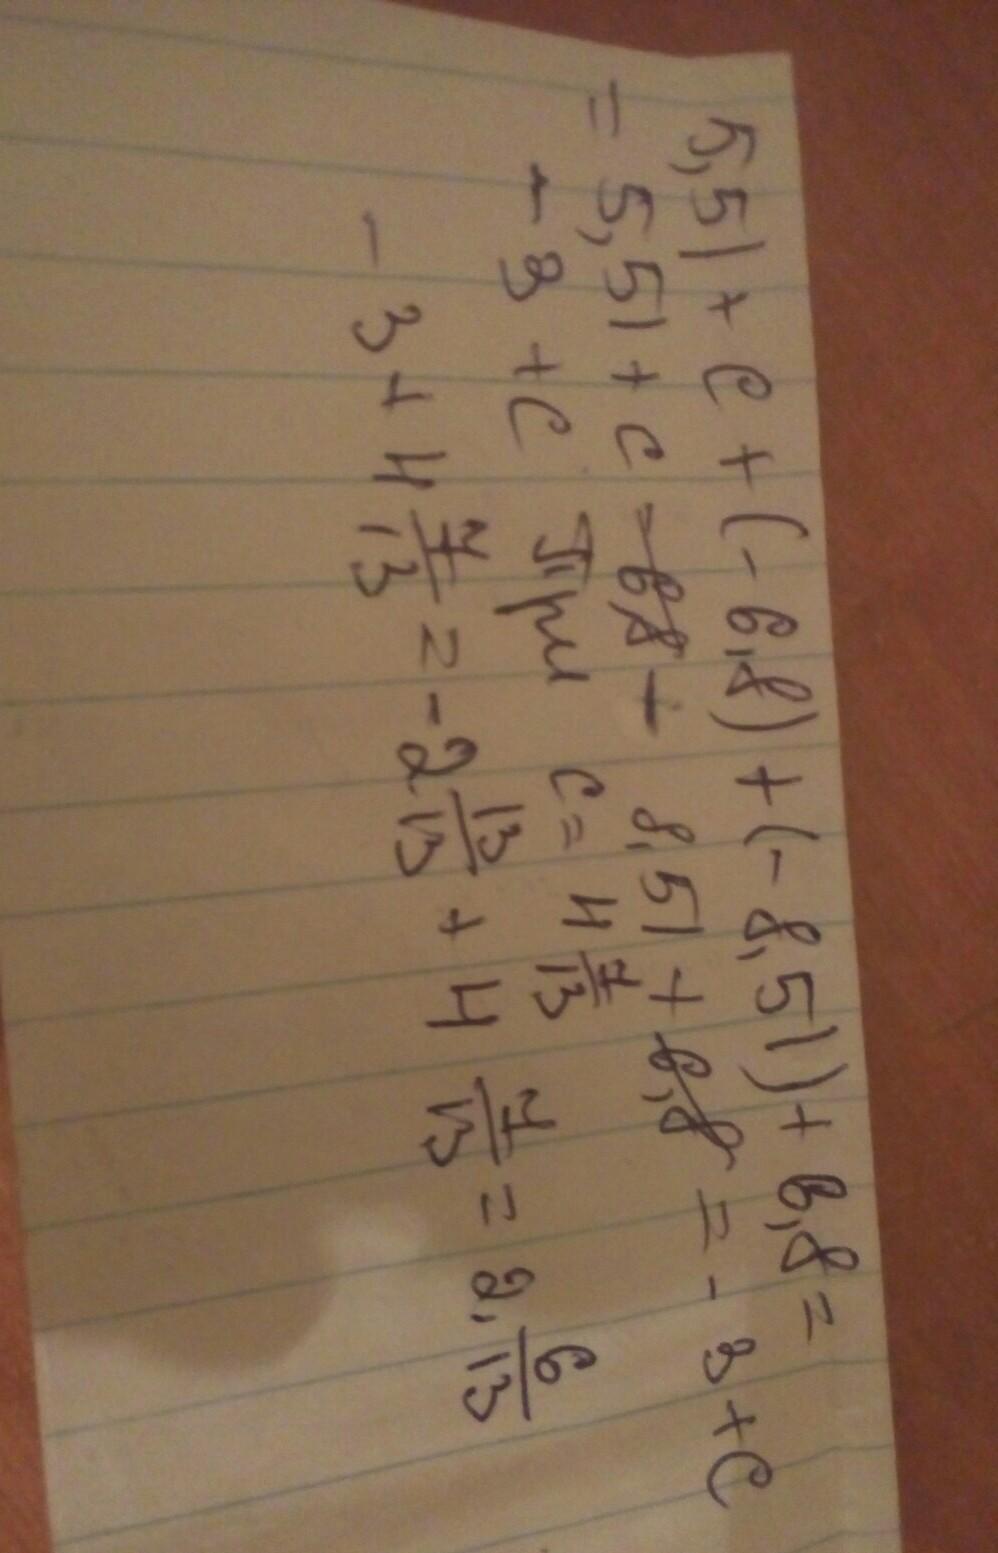 5,51 + c + (-6,8) + (-8,51) + 6,8 =
= 5,51 + c - 6,8 - 8,51 + 6,8 = - 3 + c
- 3 + c При c = 4 7/13
- 3 + 4 7/13 = -2 13/13 + 4 7/13 = 2. 6/13